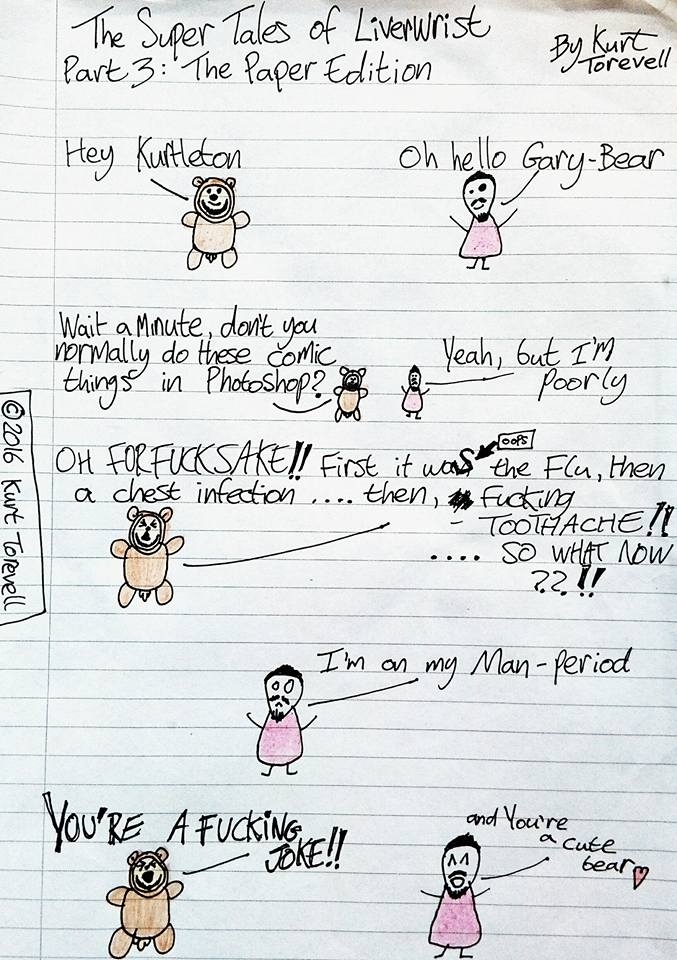 The Super Tales of Liverwrist
Part 3: The Paper Edition
By Kurt
Torevell
Hey Kurtleton
Oh hello Gary-Bear
Wait a Minute, don't you
normally do these comic
things in Photoshop?
Yeah, but I'm
poorly
OH FORFUCKSAKE!! First it was the Flu, then
OOPS
a chest infection .... then, Fucking
- TOOTHACHE!!
.... SO WHAT NOW
??!!
©2016 Kurt Torevell
I'm on my Man-period
YOU'RE A FUCKING
JOKE!!
and You're
a cute
bear